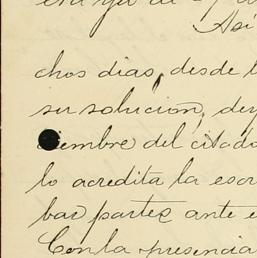 Así
chos dias, desde l
su solucion, de
iembre del citado
lo acredita la escr
bar partes ante e
Con la presencia